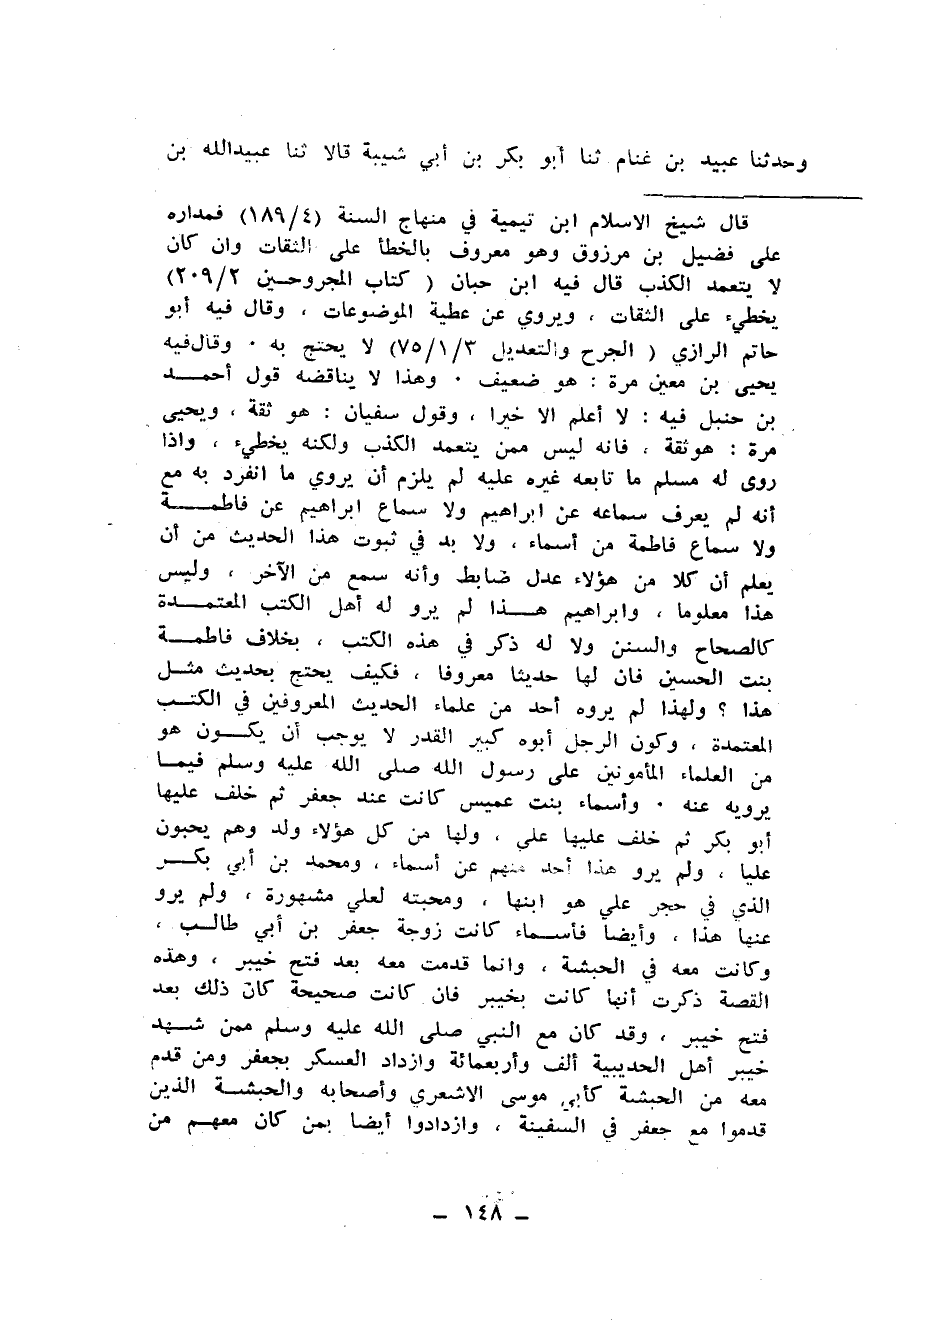 وحدثنا عبيد بن غنام ثنا أبو بكر بن أبي شيبة قالا ثنا عبيدالله بن
قال شيخ الاسلام ابن تيمية في منهاج السنة (١٨٩/٤) فمداره
على فضيل بن مرزوق وهو معروف بالخطأ على الثقات وان كان
لا يتعمد الكذب قال فيه ابن حبان ( كتاب المجروحين ٢٠٩/٢)
يخطيء على الثقات ، ويروي عن عطية الموضوعات ، وقال فيه أبو
حاتم الرازي ( الجرح والتعديل ٧٥/١/٣) لا يحتج به ٠ وقال فيه
يحيى بن معين مرة : هو ضعيف ٠ وهذا لا يناقضه قول أحمـــد
بن حنبل فيه : لا أعلم الا خيرا ، وقول سفيان : هو ثقة ، ويحيى
مرة : هو ثقة ، فانه ليس ممن يتعمد الكذب ولكنه يخطيء ، واذا
روى له مسلم ما تابعه غيره عليه لم يلزم أن يروي ما انفرد به مع
أنه لم يعرف سماعه عن ابراهيم ولا سماع ابراهيم عن فاطمـــة
ولا سماع فاطمة من أسماء ، ولا بد في ثبوت هذا الحديث من أن
يعلم أن كلا من هؤلاء عدل ضابط وأنه سمع من الآخر ، وليس
هذا معلوما ، وابراهيم هـــذا لم يرو له أهل الكتب المعتمـــدة
كالصحاح والسنن ولا له ذكر في هذه الكتب ، بخلاف فاطمـــة
بنت الحسين فان لها حديثا معروفا ، فكيف يحتج بحديث مثـــل
هذا ؟ ولهذا لم يروه أحد من علماء الحديث المعروفين في الكتـــب
المعتمدة ، وكون الرجل أبوه كبير القدر لا يوجب أن يكـــون هو
من العلماء المأمونين على رسول الله صلى الله عليه وسلم فيمـــا
يرويه عنه ٠ وأسماء بنت عميس كانت عند جعفر ثم خلف عليها
أبو بكر ثم خلف عليها علي ، ولها من كل هؤلاء ولد وهم يحبون
عليا ، ولم يرو هذا أحد منهم عن أسماء ، ومحمد بن أبي بكـــر
الذي في حجر علي هو ابنها ، ومحبته لعلي مشهورة ، ولم يرو
عنها هذا ، وأيضا فأســـماء كانت زوجة جعفر بن أبي طالـــب ،
وكانت معه في الحبشة ، وانما قدمت معه بعد فتح خيبر ، وهذه
القصة ذكرت أنها كانت بخيبر فان كانت صحيحة كان ذلك بعد
فتح خيبر ، وقد كان مع النبي صلى الله عليه وسلم ممن شـــهد
خيبر أهل الحديبية ألف وأربعمائة وازداد العسكر بجعفر ومن قدم
معه من الحبشة كأبي موسى الاشعري وأصحابه والحبشـــة الذين
قدموا مع جعفر في السفينة ، وازدادوا أيضا بمن كان معهـــم من
– ١٤٨ –